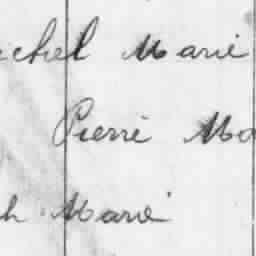 chel Marie
Pierre Ma
h Marie